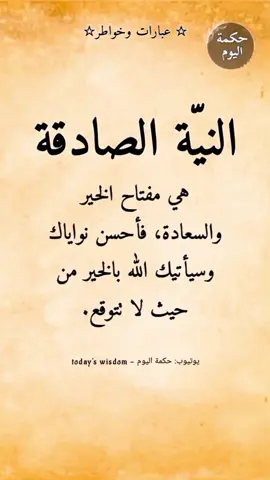 ☆ عبارات وخواطر☆
حكمة
اليوم
النيّة الصادقة
هي مفتاح الخير
والسعادة، فأحسن نواياك
وسيأتيك الله بالخير من
حيث لا تتوقع.
يوتيوب: حكمة اليوم - today's wisdom